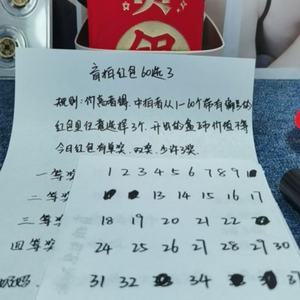 盲拍红包60选3
规则:价高者得,中拍者从1-60个带有编号的
红包里任意选择3个,开出的金币价值不等
今日红包有单奖、双奖、少许3奖
一等奖 1 2 3 4 5 6 7 8 9
二等奖 13 14 15 16 17
三等奖 18 19 20 21 22
四等奖 24 25 26 27 28 29 30
31 32 34 37